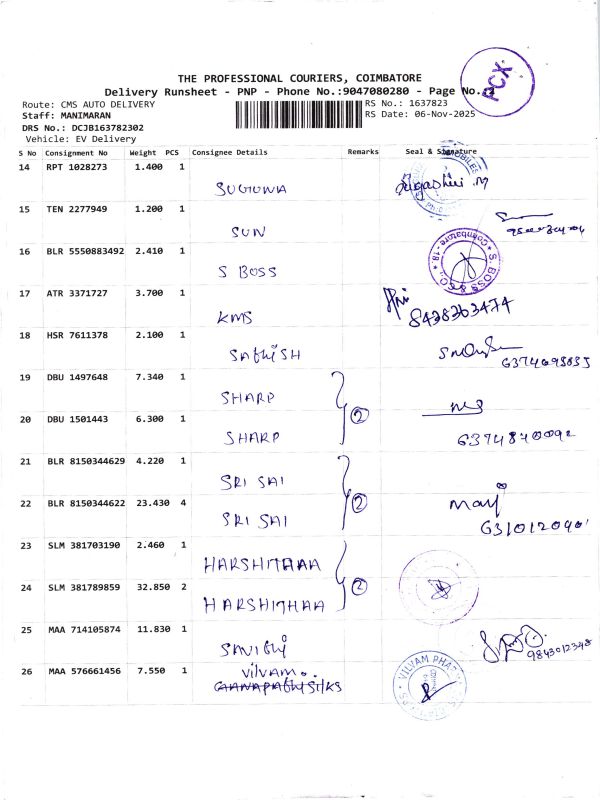 PCX
THE PROFESSIONAL COURIERS, COIMBATORE
Delivery Runsheet - PNP - Phone No.:9047080280 - Page No.
Route: CMS AUTO DELIVERY
RS No.: 1637823
Staff: MANIMARAN
RS Date: 06-Nov-2025
DRS No.: DCJB163782302
Vehicle: EV Delivery
S No Consignment No Weight PCS Consignee Details Remarks Seal & Signature
14 RPT 1028273 1.400 1
SUGUNA
15 TEN 2277949 1.200 1
SUN
16 BLR 5550883492 2.410 1
S BOSS
S. BOSS & CO. Coimbatore - 18.
17 ATR 3371727 3.700 1
KMS
8438363474
18 HSR 7611378 2.100 1
SAthiSH
19 DBU 1497648 7.340 1
SHARP
20 DBU 1501443 6.300 1
SHARP 2
6374840092
21 BLR 8150344629 4.220 1
SRI SAI
22 BLR 8150344622 23.430 4
SRI SAI 2
23 SLM 381703190 2.460 1
HARSHITHAA
24 SLM 381789859 32.850 2
HARSHITHAA 2
25 MAA 714105874 11.830 1
9843012348
26 MAA 576661456 7.550 1
VILVAM
SILKS
VILVAM